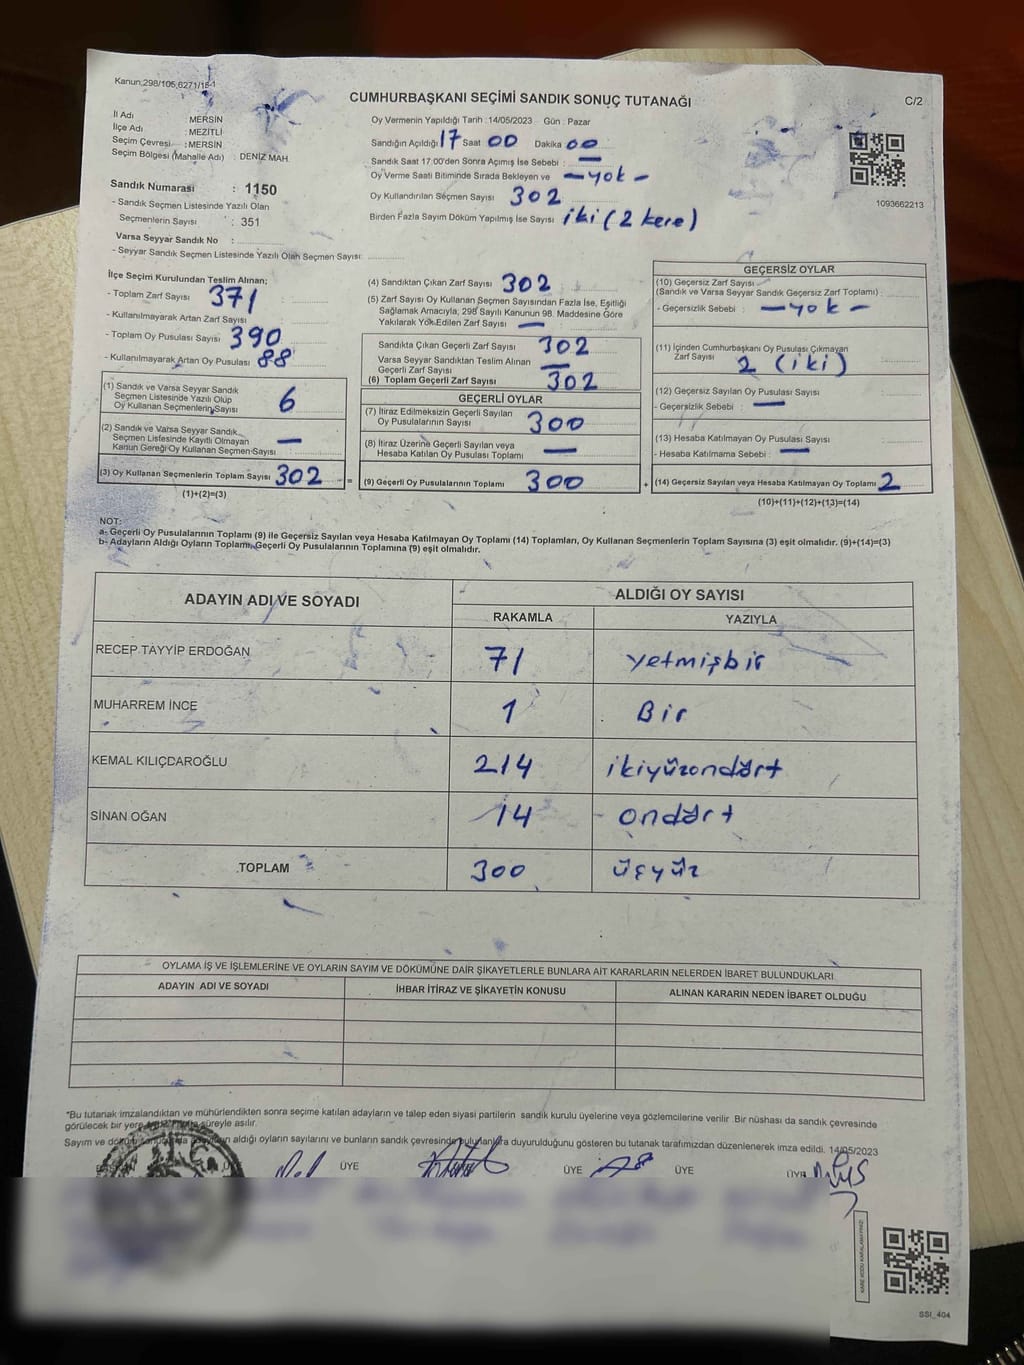 Kanun:298/105,6271/15-1
CUMHURBAŞKANI SEÇİMİ SANDIK SONUÇ TUTANAĞI
C/2
İl Adı MERSİN
İlçe Adı : MEZİTLİ
Seçim Çevresi : MERSİN
Seçim Bölgesi (Mahalle Adı) : DENİZ MAH.
Sandık Numarası : 1150
- Sandık Seçmen Listesinde Yazılı Olan
Seçmenlerin Sayısı : 351
Varsa Seyyar Sandık No :
- Seyyar Sandık Seçmen Listesinde Yazılı Olan Seçmen Sayısı:
Oy Vermenin Yapıldığı Tarih : 14/05/2023 Gün : Pazar
Sandığın Açıldığı 17 Saat 00 Dakika 00
Sandık Saat 17:00'den Sonra Açımış İse Sebebi : —
Oy Verme Saati Bitiminde Sırada Bekleyen ve — yok —
Oy Kullandırılan Seçmen Sayısı 302
Birden Fazla Sayım Döküm Yapılmış İse Sayısı iki (2 kere)
1093662213
İlçe Seçim Kurulundan Teslim Alınan;
- Toplam Zarf Sayısı 371
- Kullanılmayarak Artan Zarf Sayısı
- Toplam Oy Pusulası Sayısı 390
- Kullanılmayarak Artan Oy Pusulası 88
(1) Sandık ve Varsa Seyyar Sandık
Seçmen Listesinde Yazılı Olup
Oy Kullanan Seçmenlerin Sayısı 6
(2) Sandık ve Varsa Seyyar Sandık
Seçmen Listesinde Kayıtlı Olmayan
Kanun Gereği Oy Kullanan Seçmen Sayısı —
(3) Oy Kullanan Seçmenlerin Toplam Sayısı 302 =
(1)+(2)=(3)
(4) Sandıktan Çıkan Zarf Sayısı 302
(5) Zarf Sayısı Oy Kullanan Seçmen Sayısından Fazla İse, Eşitliği
Sağlamak Amacıyla, 298 Sayılı Kanunun 98. Maddesine Göre
Yakılarak Yok Edilen Zarf Sayısı —
Sandıkta Çıkan Geçerli Zarf Sayısı 302
Varsa Seyyar Sandıktan Teslim Alınan
Geçerli Zarf Sayısı —
(6) Toplam Geçerli Zarf Sayısı 302
GEÇERLİ OYLAR
(7) İtiraz Edilmeksizin Geçerli Sayılan
Oy Pusulalarının Sayısı 300
(8) İtiraz Üzerine Geçerli Sayılan veya
Hesaba Katılan Oy Pusulası Toplamı —
(9) Geçerli Oy Pusulalarının Toplamı 300 +
GEÇERSİZ OYLAR
(10) Geçersiz Zarf Sayısı
(Sandık ve Varsa Seyyar Sandık Geçersiz Zarf Toplamı)
- Geçersizlik Sebebi : — yok —
(11) İçinden Cumhurbaşkanı Oy Pusulası Çıkmayan
Zarf Sayısı 2 (iki)
(12) Geçersiz Sayılan Oy Pusulası Sayısı
- Geçersizlik Sebebi : —
(13) Hesaba Katılmayan Oy Pusulası Sayısı
- Hesaba Katılmama Sebebi : —
(14) Geçersiz Sayılan veya Hesaba Katılmayan Oy Toplamı 2
(10)+(11)+(12)+(13)=(14)
NOT:
a- Geçerli Oy Pusulalarının Toplamı (9) ile Geçersiz Sayılan veya Hesaba Katılmayan Oy Toplamı (14) Toplamları, Oy Kullanan Seçmenlerin Toplam Sayısına (3) eşit olmalıdır. (9)+(14)=(3)
b- Adayların Aldığı Oyların Toplamı, Geçerli Oy Pusulalarının Toplamına (9) eşit olmalıdır.
ADAYIN ADI VE SOYADI ALDIĞI OY SAYISI
RAKAMLA YAZIYLA
RECEP TAYYİP ERDOĞAN 71 yetmişbir
MUHARREM İNCE 1 Bir
KEMAL KILIÇDAROĞLU 214 ikiyüzondört
SİNAN OĞAN 14 ondört
TOPLAM 300 üçyüz
OYLAMA İŞ VE İŞLEMLERİNE VE OYLARIN SAYIM VE DÖKÜMÜNE DAİR ŞİKAYETLERLE BUNLARA AİT KARARLARIN NELERDEN İBARET BULUNDUKLARI
ADAYIN ADI VE SOYADI İHBAR İTİRAZ VE ŞİKAYETİN KONUSU ALINAN KARARIN NEDEN İBARET OLDUĞU
*Bu tutanak imzalandıktan ve mühürlendikten sonra seçime katılan adayların ve talep eden siyasi partilerin sandık kurulu üyelerine veya gözlemcilerine verilir. Bir nüshası da sandık çevresinde
görülecek bir yere süreyle asılır.
Sayım ve aldığı oyların sayılarını ve bunların sandık çevresinde duyurulduğunu gösteren bu tutanak tarafımızdan düzenlenerek imza edildi. 14/05/2023
ÜYE ÜYE ÜYE ÜYE
SSI_404